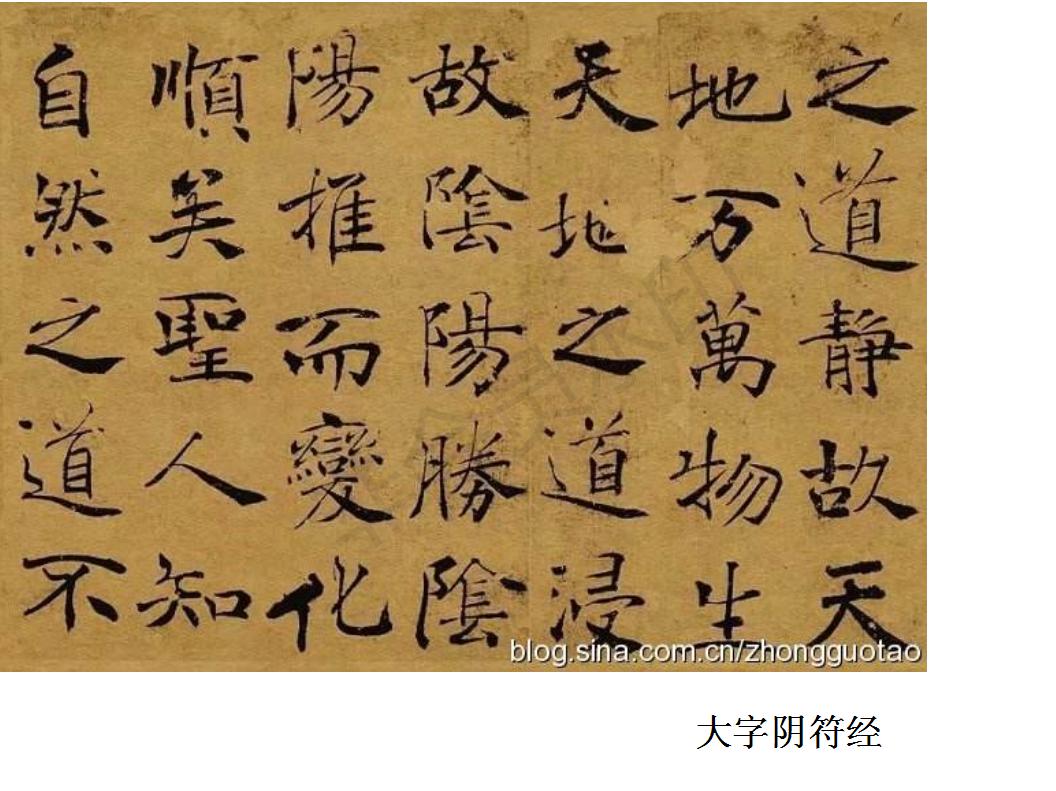 之道静故天
地万萬物生
天地之道浸
故陰陽勝陰
陽推而變化
順矣聖人知
自然之道不
blog.sina.com.cn/zhongguotao
大字阴符经